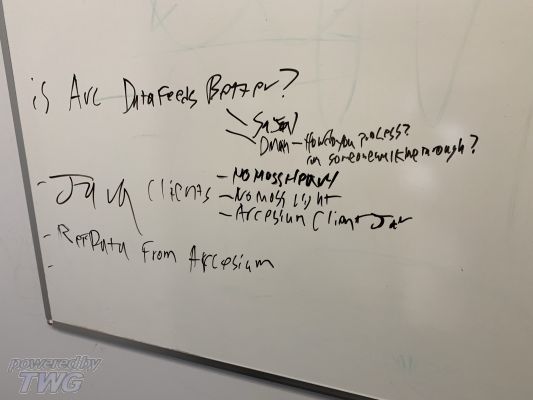 is Arc Data Feeds Better?
Dman - How do you process?
can someone walk me through?
- Java Clients - No Moss Heavy
- No Moss Light
- Arcesium Client Jar
- Ref Data From Arcesium
-
powered by
TWG